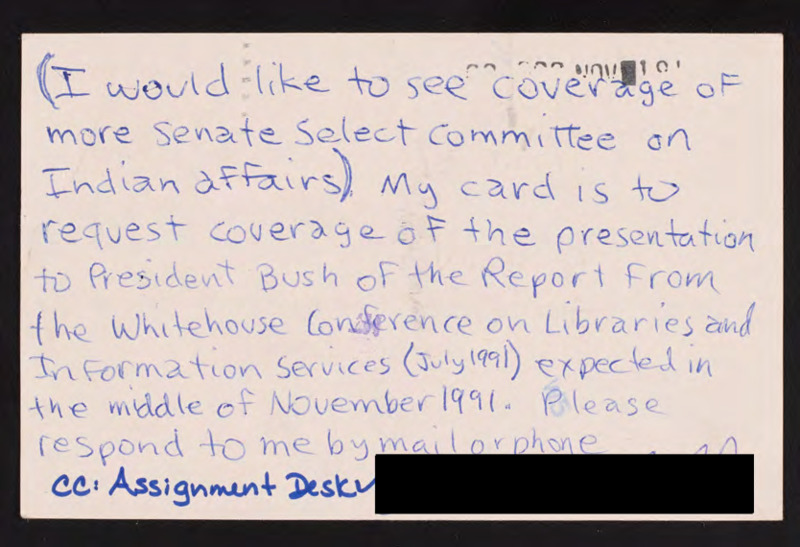 (I would like to see coverage of
more Senate Select Committee on
Indian affairs) My card is to
request coverage of the presentation
to President Bush of the Report From
the Whitehouse Conference on Libraries and
Information Services (July 1991) expected in
the middle of November 1991. Please
respond to me by mail or phone
cc: Assignment Desk